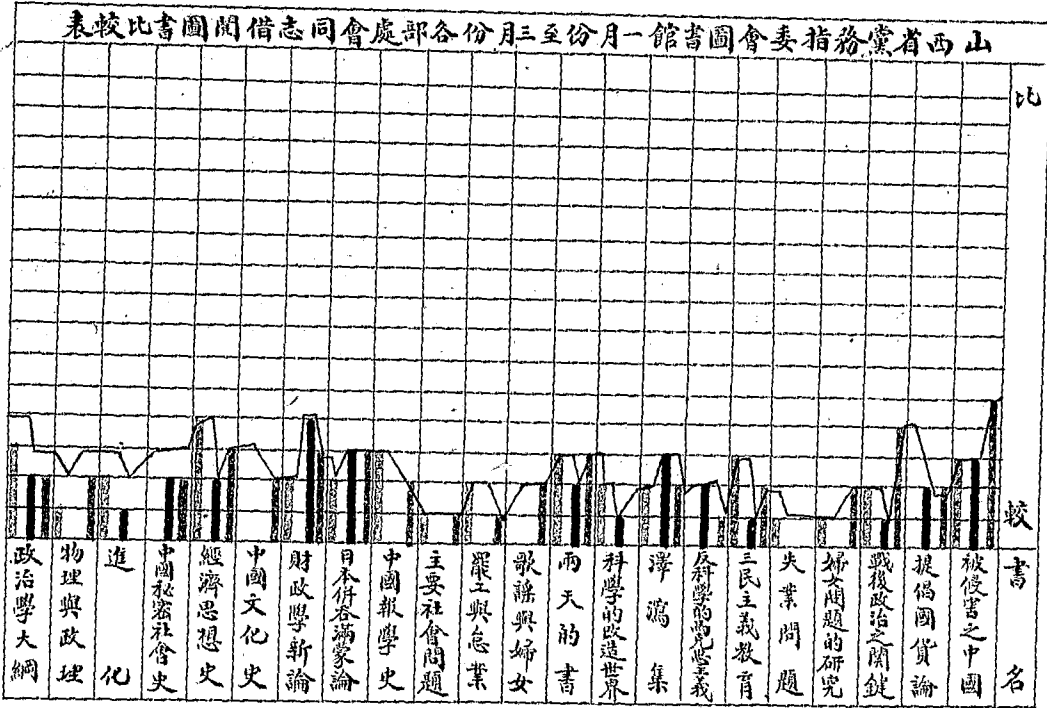 山西省黨務指委會圖書館一月份至三月份各部處會同志借閱圖書比較表
比較
書名
被侵害之中國
提倡國貨論
戰後政治之關鍵
婦女問題的研究
失業問題
三民主義教育
反科學的馬克思主義
澤瀉集
科學的改造世界
雨天的書
歌謠與婦女
罷工與怠業
主要社會問題
中國報學史
日本併吞滿蒙論
財政學新論
中國文化史
經濟思想史
中國秘密社會史
進化
物理與政理
政治學大綱